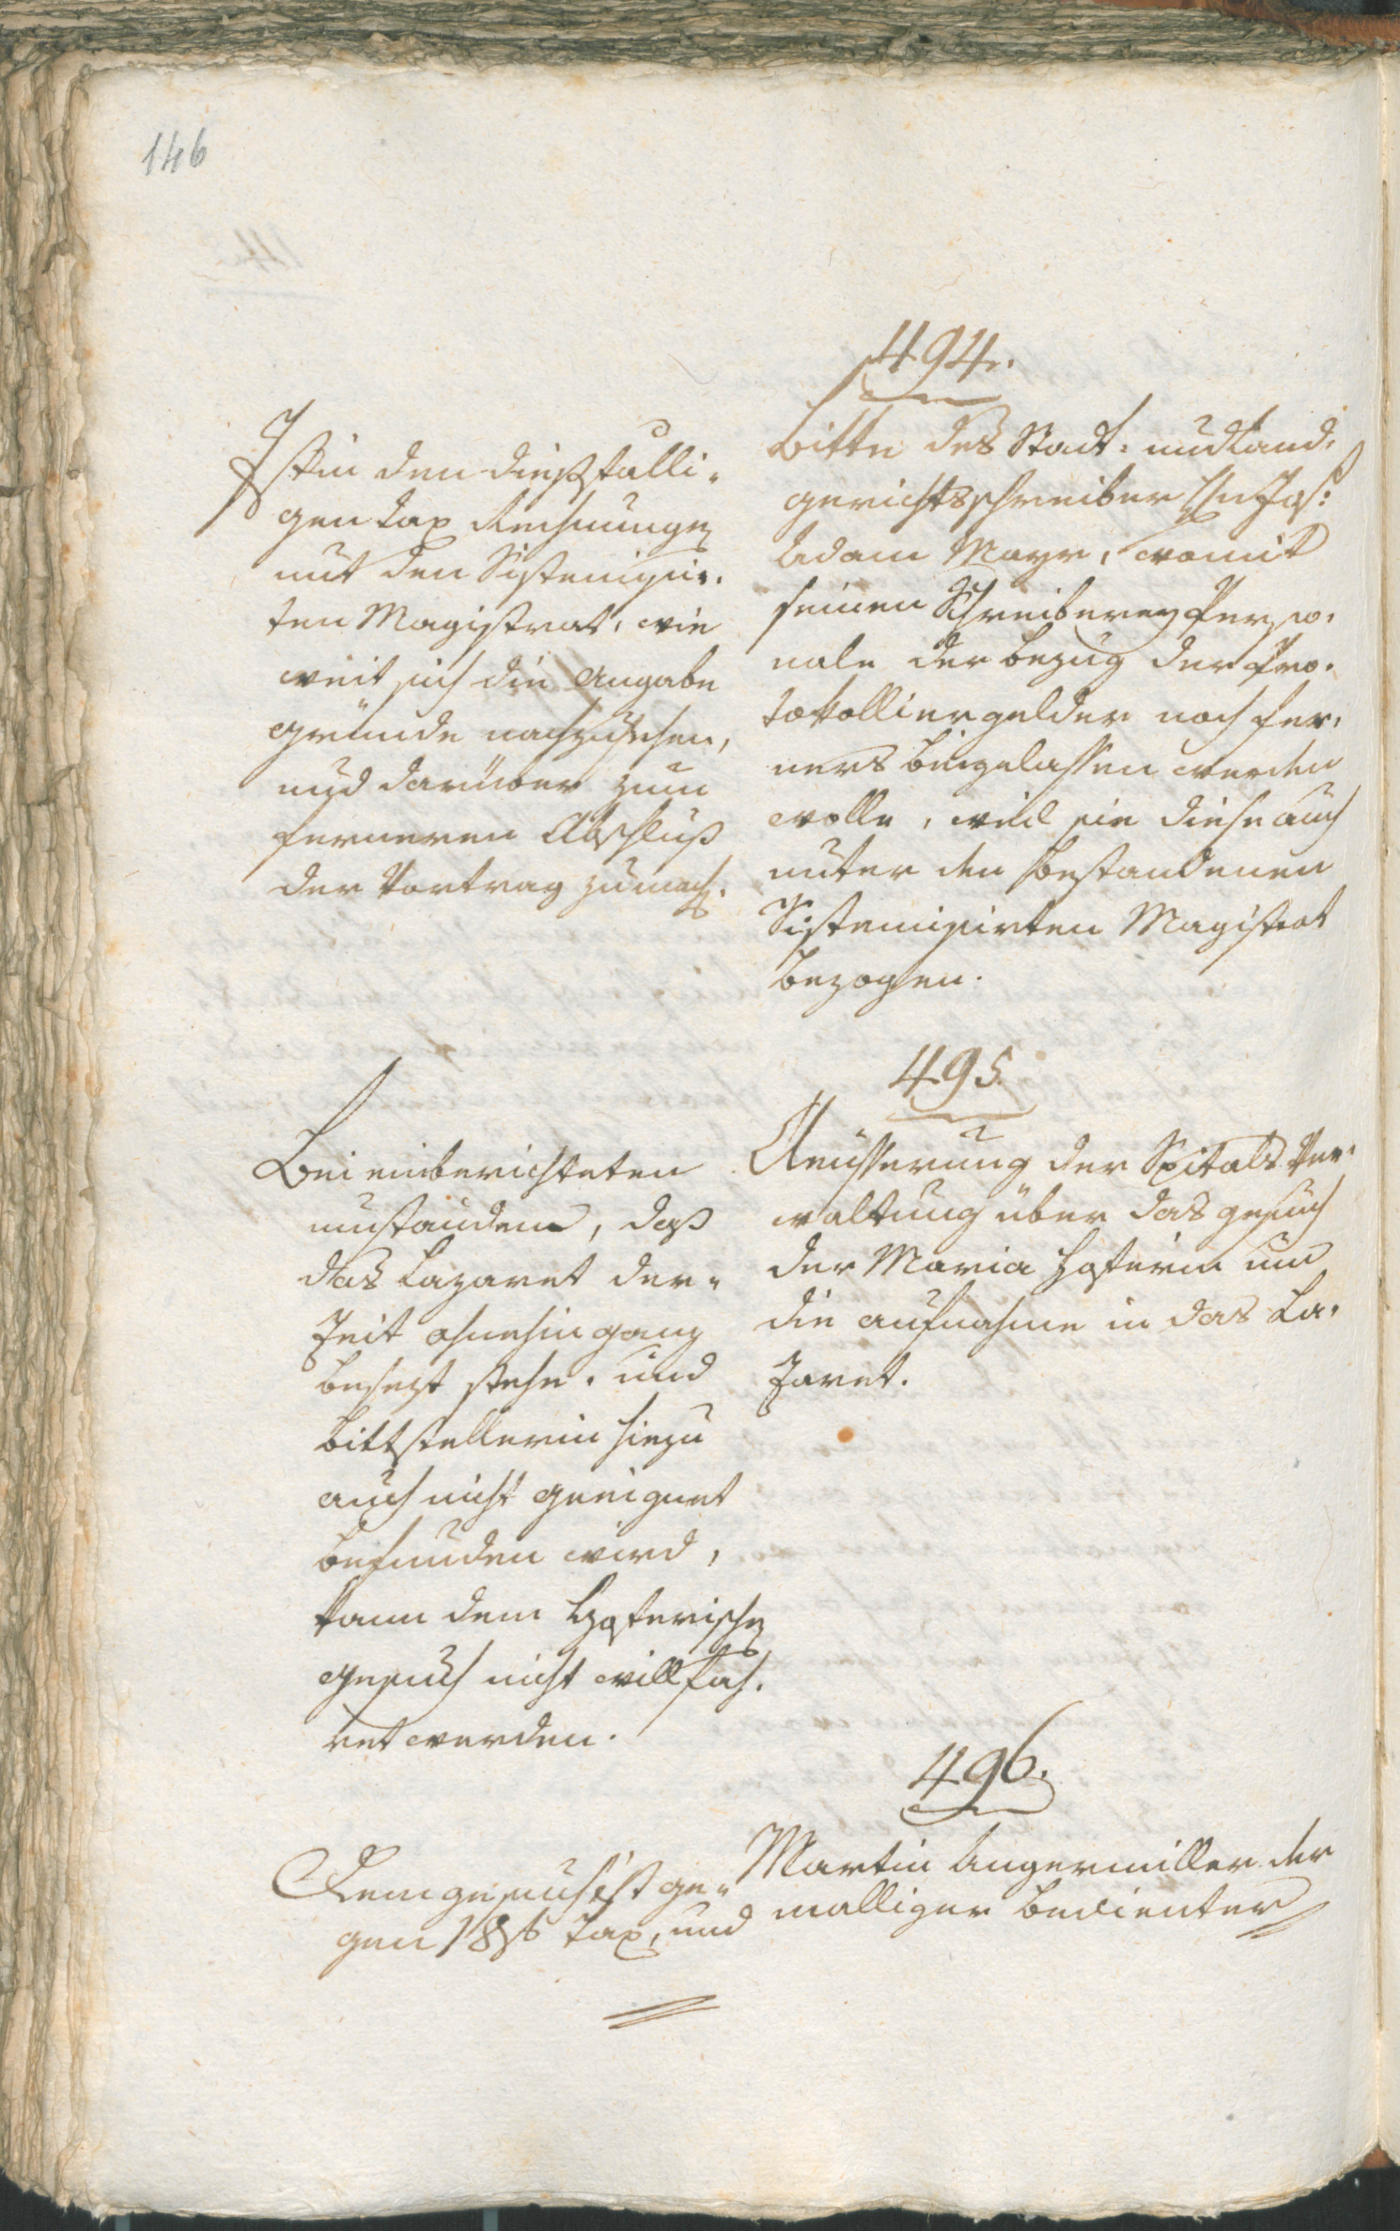 146
494.
Bitte des Stadt- und Land-
gerichtsschreiber Hn Jos:
Adam Mayr, womit
seinen Schreiberey Perso-
nale der Bezug der Pro-
tokolliergelder noch fer-
ners beigelassen werden
wolle, weil sie diese auch
unter den bestandenen
Sistemisirten Magistrat
bezogen.
Ist in den dießfalli-
gen Tax Rechnungen
mit den Sistemisir-
ten Magistrat, wie
weit sich die Angabe
gründe nachzusehen,
und darüber zum
ferneren Abschluß
der Vortrag zumach.
495.
Aeusserung der Spitals Ver-
waltung über das gesuch
der Maria Hosterin um
die aufnahme in das La-
zaret.
Bei einberichteten
umstanden, daß
das Lazaret der-
Zeit ohnehin ganz
besezt stehe, und
Bittstellerin hiezu
auch nicht geeignet
befunden wird,
kann dem Hosterischen
gesuch nicht willfah-
ret werden.
496.
Martin Angermiller der
malliger Bedienter
Dem gesuch ist ge-
gen 18 Tax, und